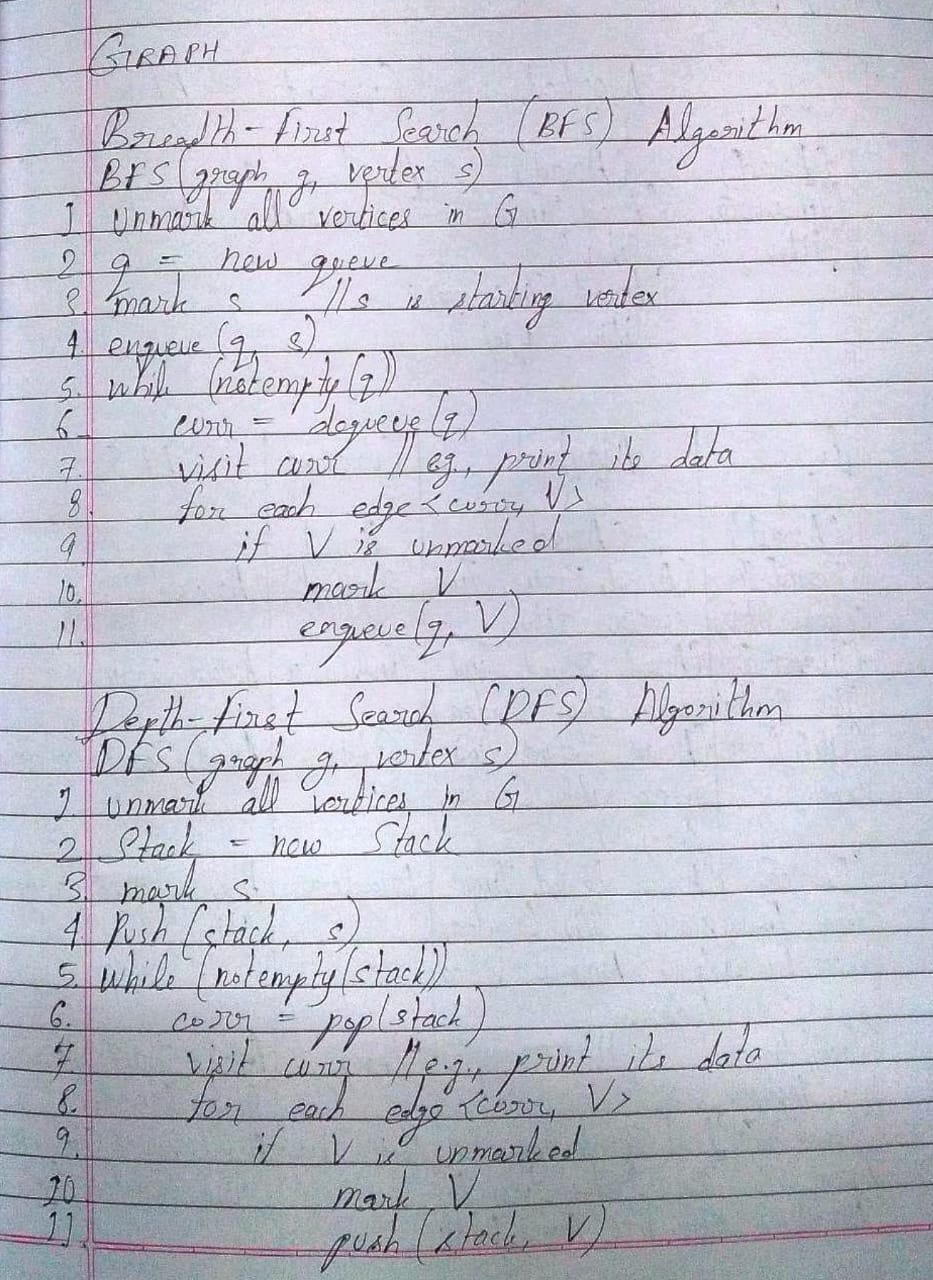 GRAPH
Breadth-First Search (BFS) Algorithm
BFS (graph g, vertex s)
1 Unmark all vertices in G
2 q = new queue
3. mark s //s is starting vertex
4. enqueue (q, s)
5. while (notempty(q))
6 curr = dequeue(q)
7. visit curr // eg., print its data
8. for each edge <curr, V>
9 if V is unmarked
10. mark V
11. enqueue(q, V)
Depth-First Search (DFS) Algorithm
DFS (graph g, vertex s)
1. unmark all vertices in G
2 Stack = new Stack
3. mark s
4. Push (stack, s)
5. while (notempty(stack))
6. curr = pop(stack)
7. visit curr // e.g., print its data
8. for each edge <curr, V>
9. if V is unmarked
10 mark V
11. push (stack, V)